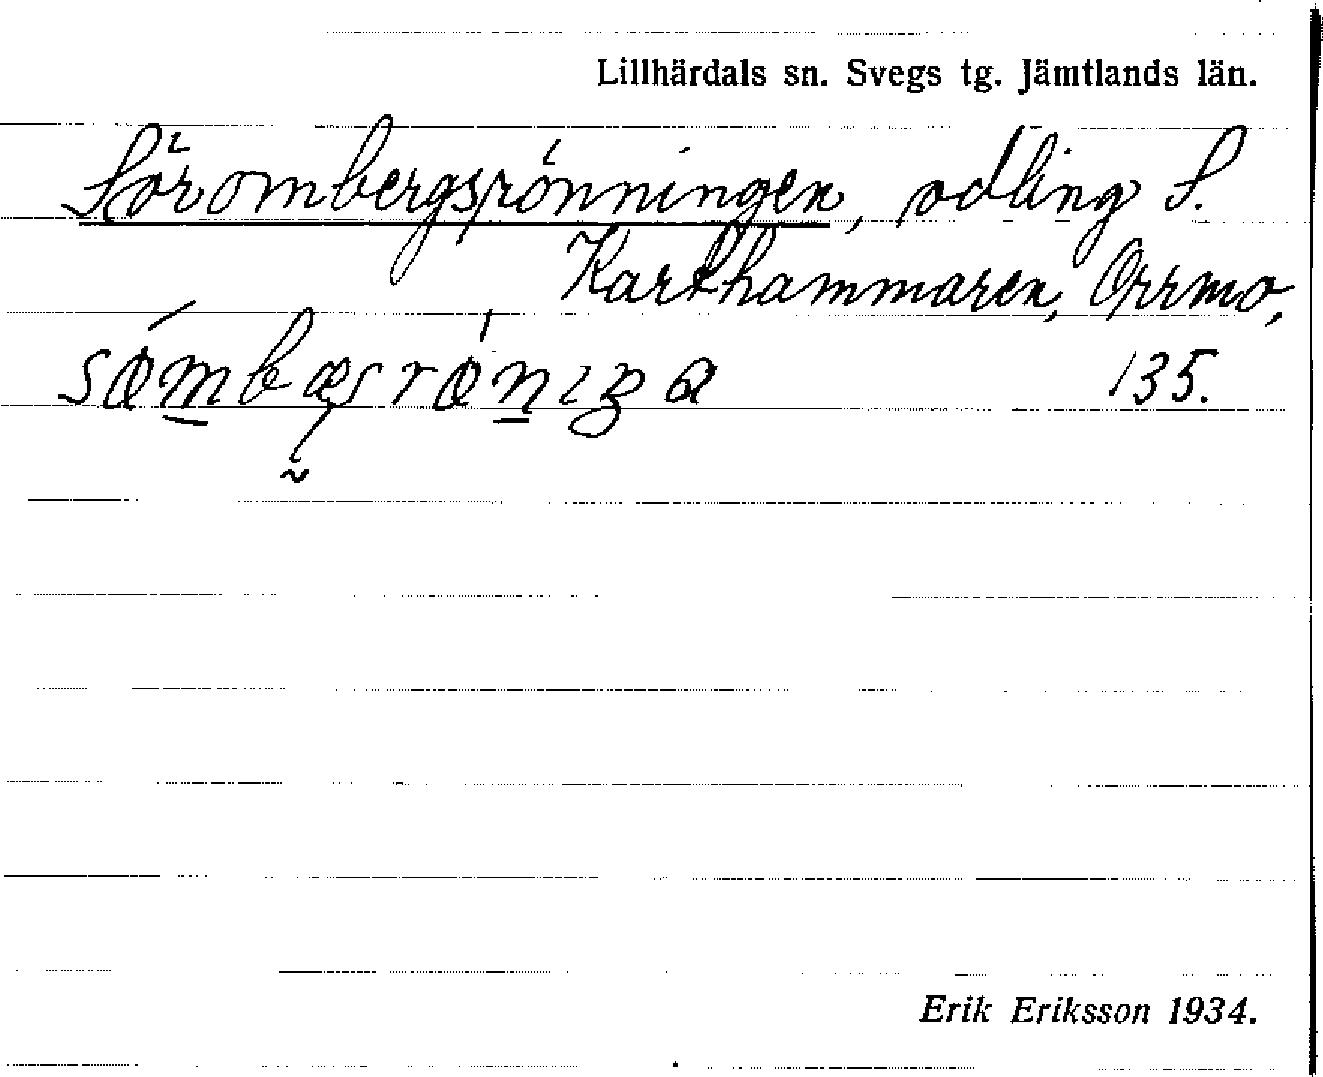 Lillhärdals sn. Svegs tg. Jämtlands län.
Sörombergsrönningen, odling S.
Karthammaren, Orrmo,
135.
Erik Eriksson 1934.